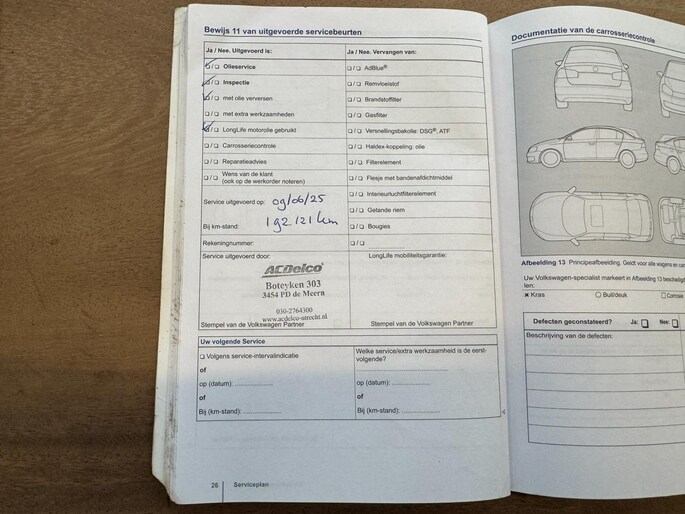 Bewijs 11 van uitgevoerde servicebeurten
Ja / Nee. Uitgevoerd is:
Olieservice
Inspectie
met olie verversen
met extra werkzaamheden
LongLife motorolie gebruikt
Carrosseriecontrole
Reparatieadvies
Wens van de klant
(ook op de werkorder noteren)
Service uitgevoerd op: 09/06/25
Bij km-stand: 192121 km
Rekeningnummer:
Ja / Nee. Vervangen van:
AdBlue®
Remvloeistof
Brandstoffilter
Gasfilter
Versnellingsbakolie: DSG®, ATF
Haldex-koppeling: olie
Filterelement
Flesje met bandenafdichtmiddel
Interieurluchtfilterelement
Getande riem
Bougies
Service uitgevoerd door:
ACDelco
Boteyken 303
3454 PD de Meern
030-2764300
www.acdelco-utrecht.nl
Stempel van de Volkswagen Partner
LongLife mobiliteitsgarantie:
Stempel van de Volkswagen Partner
Uw volgende Service
Volgens service-intervalindicatie
of
op (datum):
of
Bij (km-stand):
Welke service/extra werkzaamheid is de eerst-
volgende?
op (datum):
of
Bij (km-stand):
26 Serviceplan
Documentatie van de carrosseriecontrole
Afbeelding 13 Principeafbeelding. Geldt voor alle wagens en
Uw Volkswagen-specialist markeert in Afbeelding 13
len:
Kras Buil/deuk
Defecten geconstateerd? Ja: Nee:
Beschrijving van de defecten: